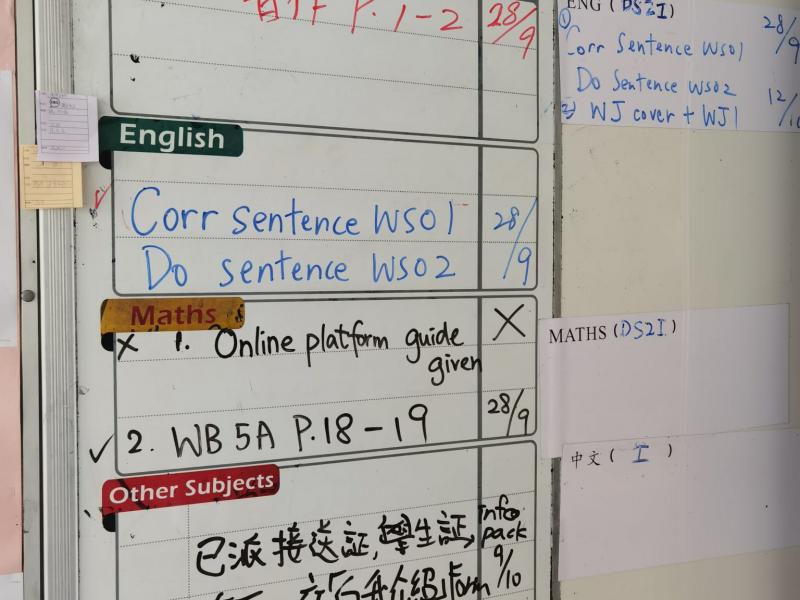 P. 1-2 28/9
English
Corr sentence WS01 28/9
Do sentence WS02
Maths
x 1. Online platform guide given X
✓ 2. WB 5A P.18-19 28/9
Other Subjects
已派接送証, 學生証, info pack 9/10
介紹 form
ENG (DS2I)
① Corr Sentence WS01 28/9
Do Sentence WS02
② WJ cover + WJ1 12/10
MATHS (DS2I)
中文 ( I )